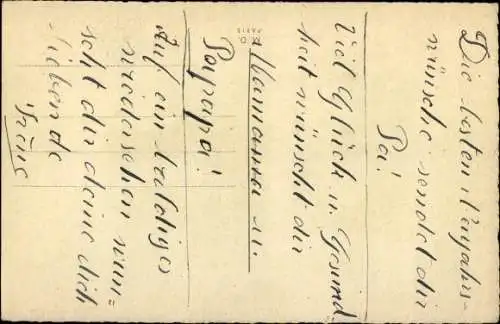 Die besten Neujahrs-
wünsche sendet dir
Pa!
Viel Glück u. Gesund
heit wünscht dir
Mamama u.
Papapa!
Auf ein baldiges
wiedersehen wün=
scht dir deine dich
liebende
Irène
M. D.
PARIS